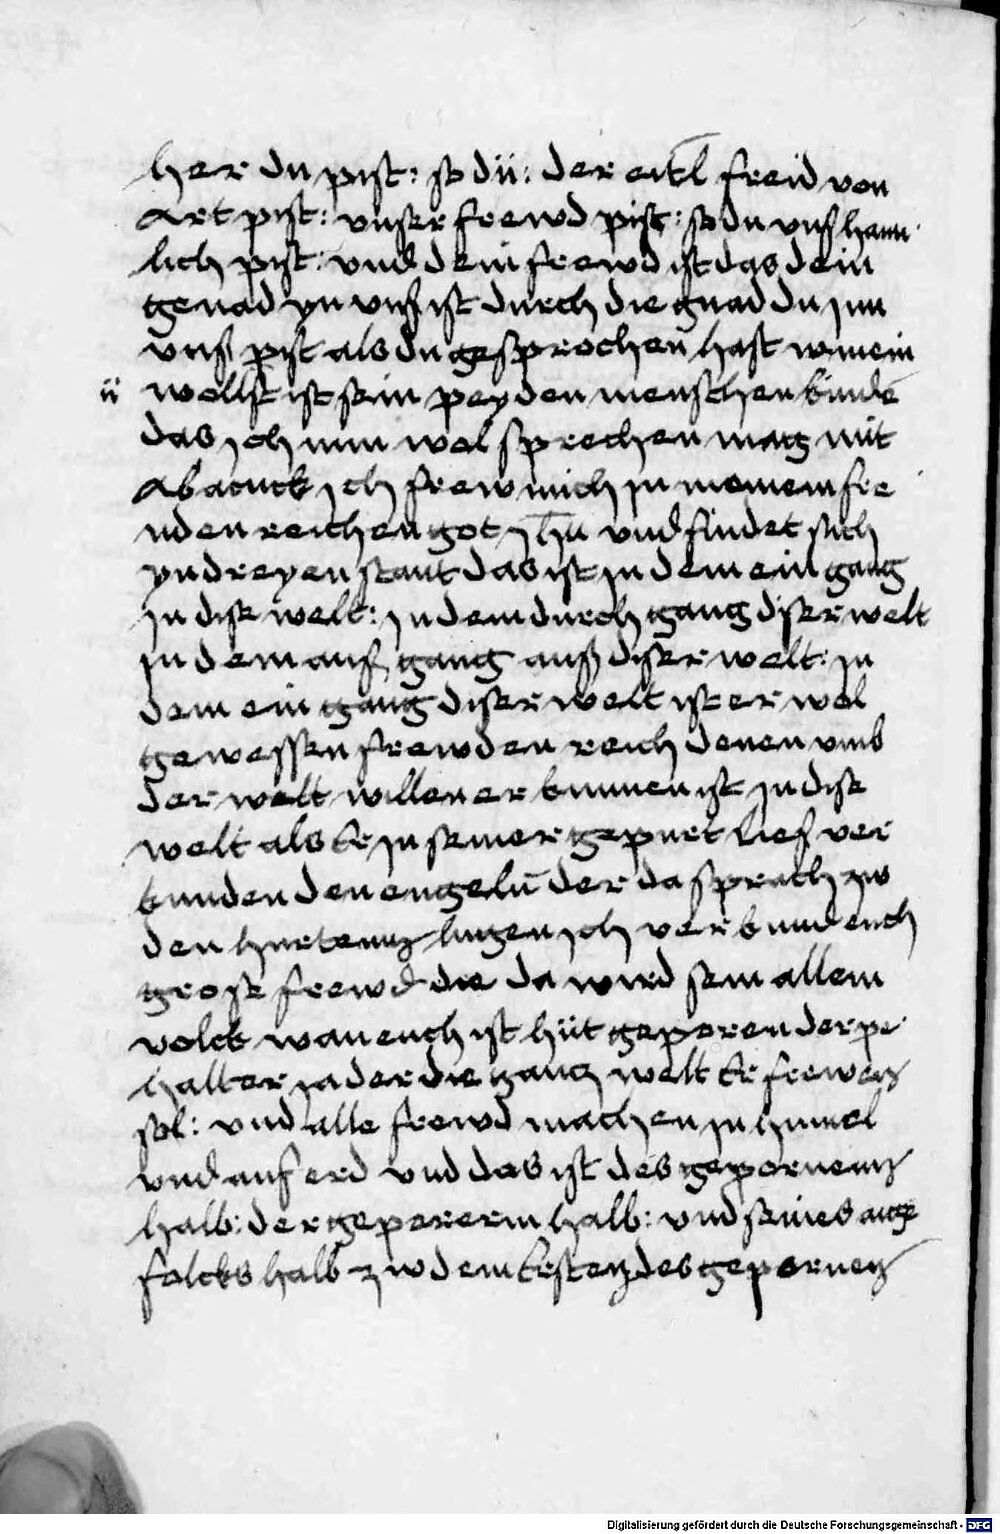 her du pist: so dü: der eitl freid von
art pist: unser frewd pist: so du unß haim
lich pist: und dein frewd ist das dein
genad yn unß ist durch die gnad du jnn
unß pist als du gesprochen hast w mein
ü wollst ist sein pey den menschen kinde
das jch nun wol sprechen mag mit
Abacuck jch frew mich jn meinem fre
uden reichen got jhu und findet sich
yn dreyen stant das ist jn dem ein gang
jn dise welt: jn dem durch gang diser welt
jn dem auß gang auß diser welt: jn
dem ein gang diser welt ist er wol
gewessen frewden reich denen umb
der welt willen er kumen ist jn dise
welt als Er jn seiner gepurt ließ ver
kunden den engeln der da sprach zw
den hirten jch verkund euch
grose frewd die da wird sein allem
volck wan euch ist hüt geporen der pe
halter ja der die gantz welt Er frewen
sol: und alle frewd machen jn himel
und auf erd und das ist des gepornenn
halb: der gepererin halb: und seines ange
folcks halb zw dem Ersten des gepornen
Digitalisierung gefördert durch die Deutsche Forschungsgemeinschaft - DFG